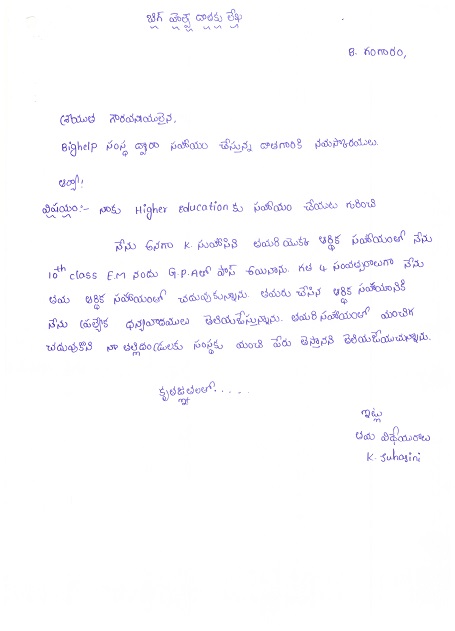 బిగ్ హెల్ప్ దాతకు లేఖ
B. గంగారం,
శ్రీయుత గౌరవనీయులైన,
Bighelp సంస్థ ద్వారా సహాయం చేస్తున్న దాతగారికి నమస్కారములు.
ఆర్యా!
విషయం:- నాకు Higher education కు సహాయం చేయుట గురించి
నేను అనగా K. సుహాసిని తమరి యొక్క ఆర్థిక సహాయంతో నేను
10th class E.M నందు G.P.A లో పాస్ అయినాను. గత 4 సంవత్సరాలుగా నేను
తమ ఆర్థిక సహాయంతో చదువుకున్నాను. తమరు చేసిన ఆర్థిక సహాయానికి
నేను ప్రత్యేక ధన్యవాదములు తెలియజేస్తున్నాను. తమరి సహాయంతో మంచిగ
చదువుకొని నా తల్లిదండ్రులకు సంస్థకు మంచి పేరు తెస్తానని తెలియజేయుచున్నాను.
కృతజ్ఞతలతో.....
ఇట్లు
తమ విధేయురాలు
K. Suhasini